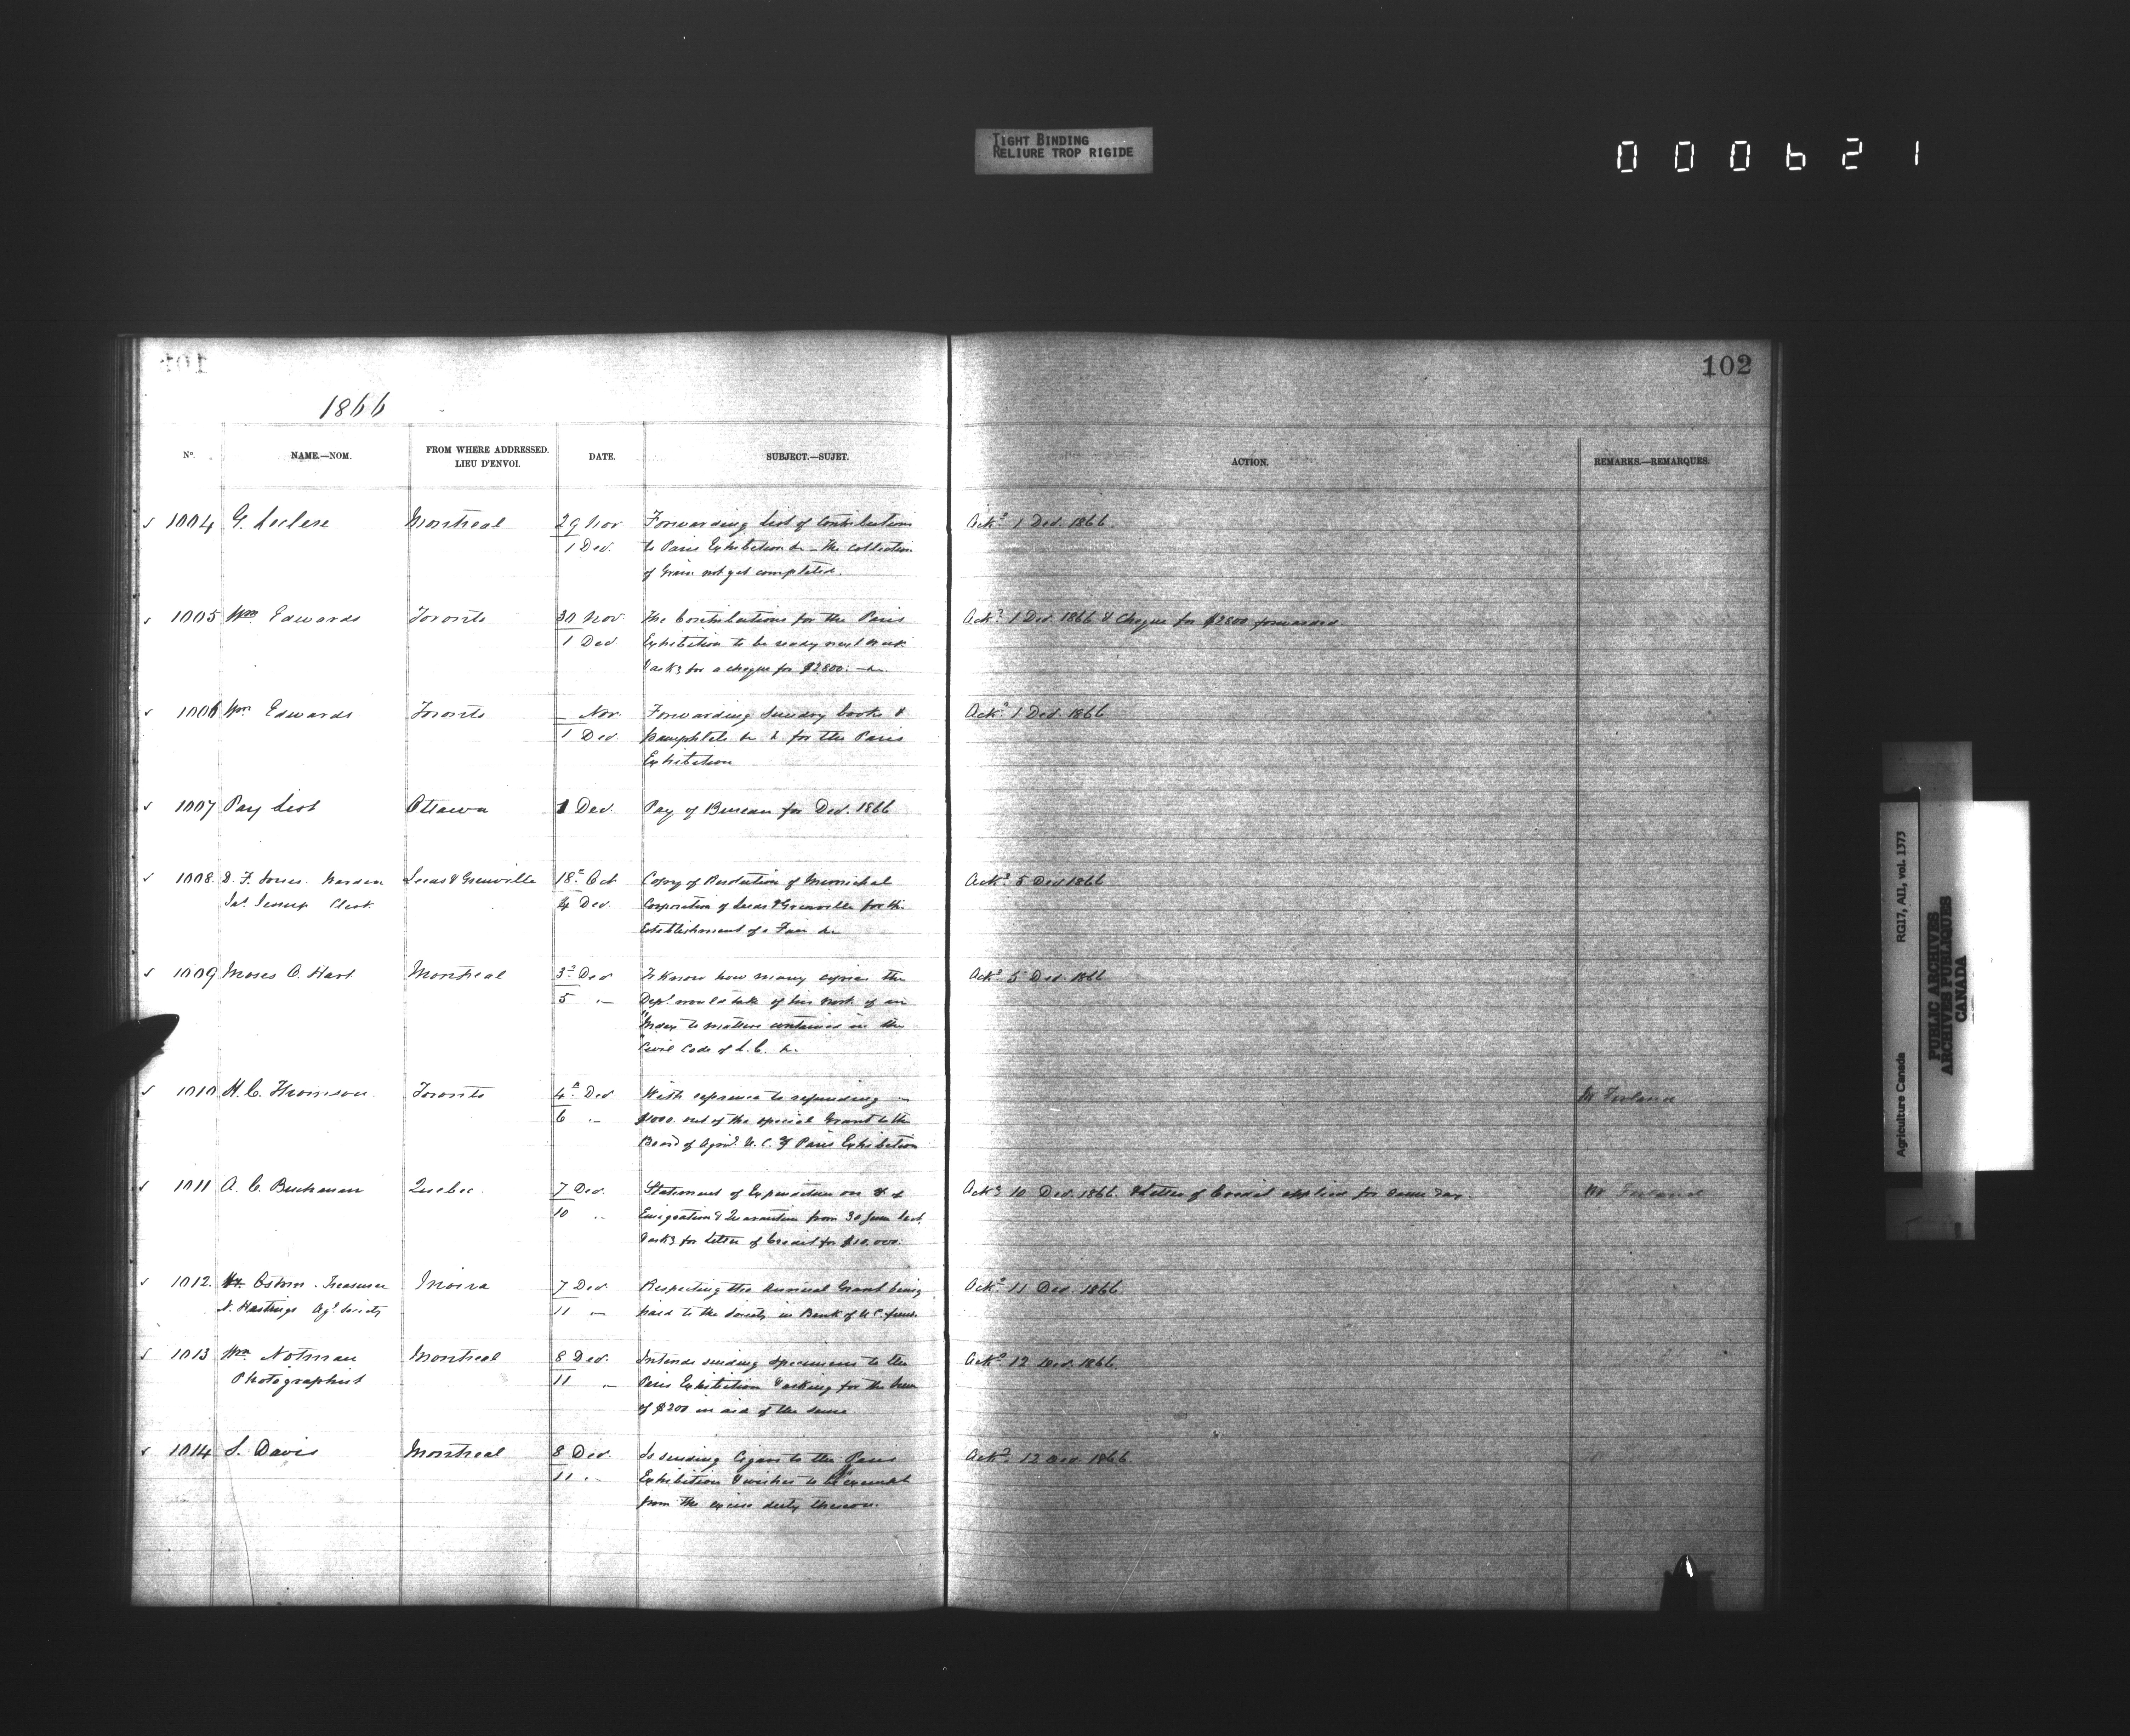 TIGHT BINDING
RELIURE TROP RIGIDE
000621
102
1866
No. NAME.—NOM. FROM WHERE ADDRESSED. LIEU D'ENVOI. DATE. SUBJECT.—SUJET. ACTION. REMARKS.—REMARQUES.
1004 G. Leclere Montreal 29 Nov Forwarding List of Contributions Ackd 1 Dec. 1866.
1 Dec. to Paris Exhibition &c - The collection
of Grain not yet completed.
1005 Wm Edwards Toronto 30 Nov The Contributions for the Paris Ackd 1 Dec. 1866 & Cheque for $2800 forwarded
1 Dec Exhibition to be ready next week
& asks for a cheque for $2800. - &c.
1006 Wm Edwards Toronto — Nov. Forwarding Sundry books & Ackd 1 Dec. 1866
1 Dec. pamphlets &c &c for the Paris
Exhibition
1007 Pay List Ottawa 1 Dec. Pay of Bureau for Dec. 1866
1008. D. F. Jones. Warden Leeds & Grenville 18th Oct Copy of Resolution of Municipal Ackd 5 Dec 1866
Jas. Jessup Clerk. 4 Dec. Corporation of Leeds & Grenville for the
Establishment of a Fair &c
1009 Moses O. Hart Montreal 3d Dec To know how many copies the Ackd 5 Dec 1866
5 " Dept. would take of his work of an
"Index to matters contained in the
"Civil Code of L. C. &c.
1010 H. C. Thomson. Toronto 4th Dec. With reference to refunding
6 " $1000. out of the special Grant to the
Board of Agri. U. C. Paris Exhibition
1011 A. C. Buchanan Quebec. 7 Dec. Statement of Expenditure on of Ackd 10 Dec. 1866. & Letter of Credit applied for same day.
10 " Emigration & Quarantine from 30 June last,
& asks for Letter of Credit for $10,000.
1012. Osborn. Treasurer Moira 7 Dec Respecting the Annual Grant being Ackd 11 Dec. 1866.
N. Hastings Agl. Society 11 " paid to the Society in Bank of U C funds.
1013 Wm. Notman Montreal 8 Dec. Intends sending specimens to the Ackd 12 Dec. 1866.
Photographist 11 " Paris Exhibition & asking for the sum
of $200 in aid of the same.
1014 S. Davis Montreal 8 Dec. Is sending Cigars to the Paris Ackd 12 Dec. 1866.
11 " Exhibition & wishes to be exempt
from the excise duty thereon.
Agriculture Canada RG17, AII, vol. 1373
PUBLIC ARCHIVES
ARCHIVES PUBLIQUES
CANADA